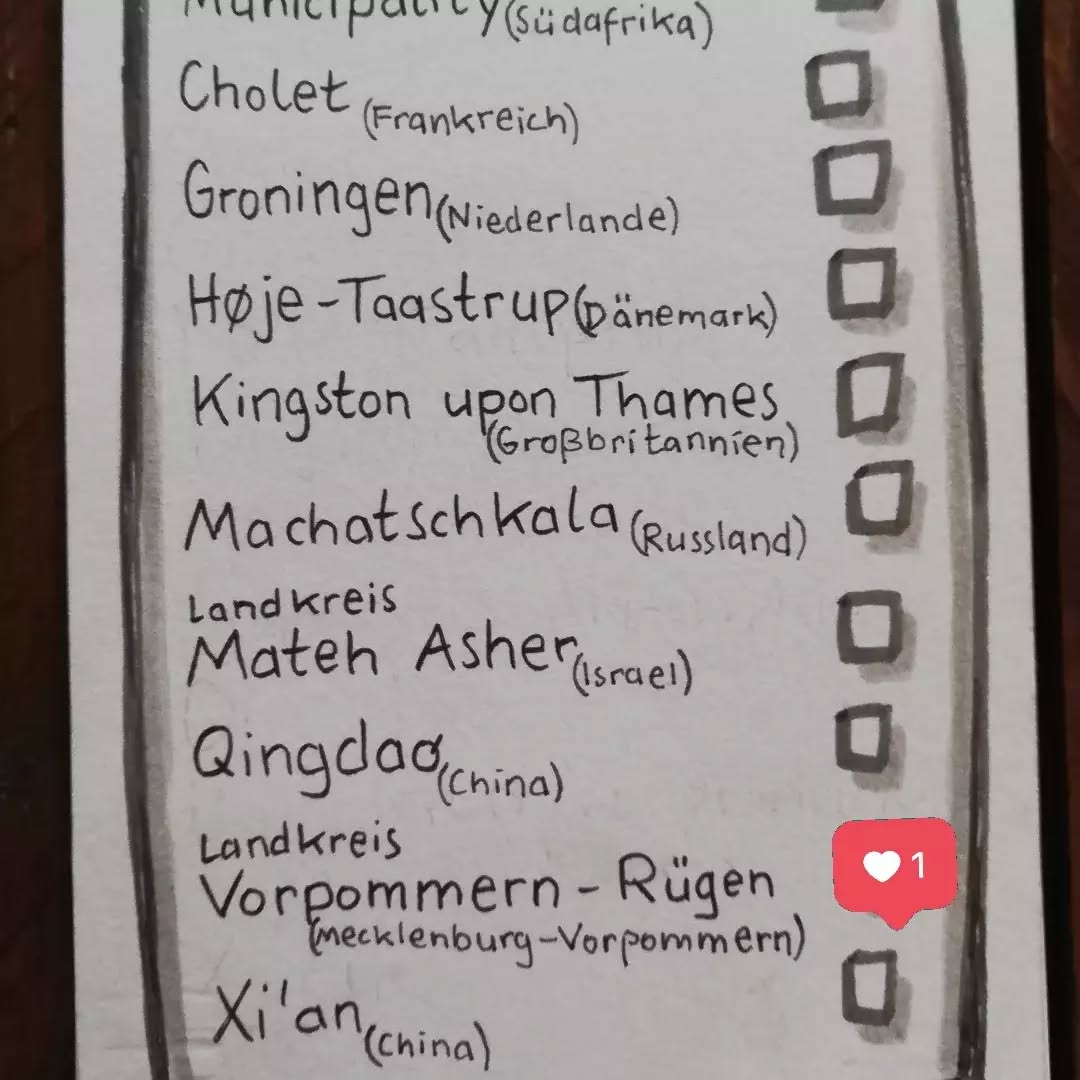 Municipality (Südafrika)
Cholet (Frankreich)
Groningen (Niederlande)
Høje-Taastrup (Dänemark)
Kingston upon Thames
(Großbritannien)
Machatschkala (Russland)
Landkreis
Mateh Asher (Israel)
Qingdao (China)
Landkreis
Vorpommern-Rügen
1
(Mecklenburg-Vorpommern)
Xi'an (China)